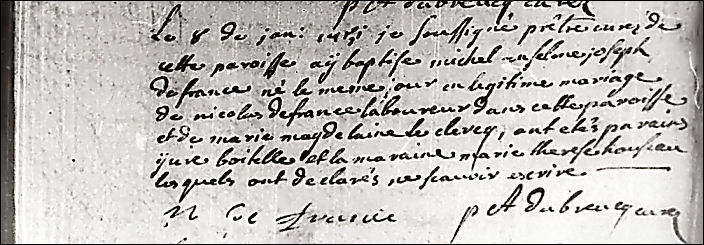 p ct dubreucq curez
Le 8 de jan: 1751 je soussigné prêtre curez de
cette paroisse aÿ baptise michel anselme joseph
defrance né le meme jour en legitime mariage
de nicolas defrance laboureur dans cette paroisse
et de marie magdelaine le clercq, ont etés parains
boitelle et la maraine marie therese
lesquels ont declarés ne scavoir escrire
N De france p ct dubreucq curez